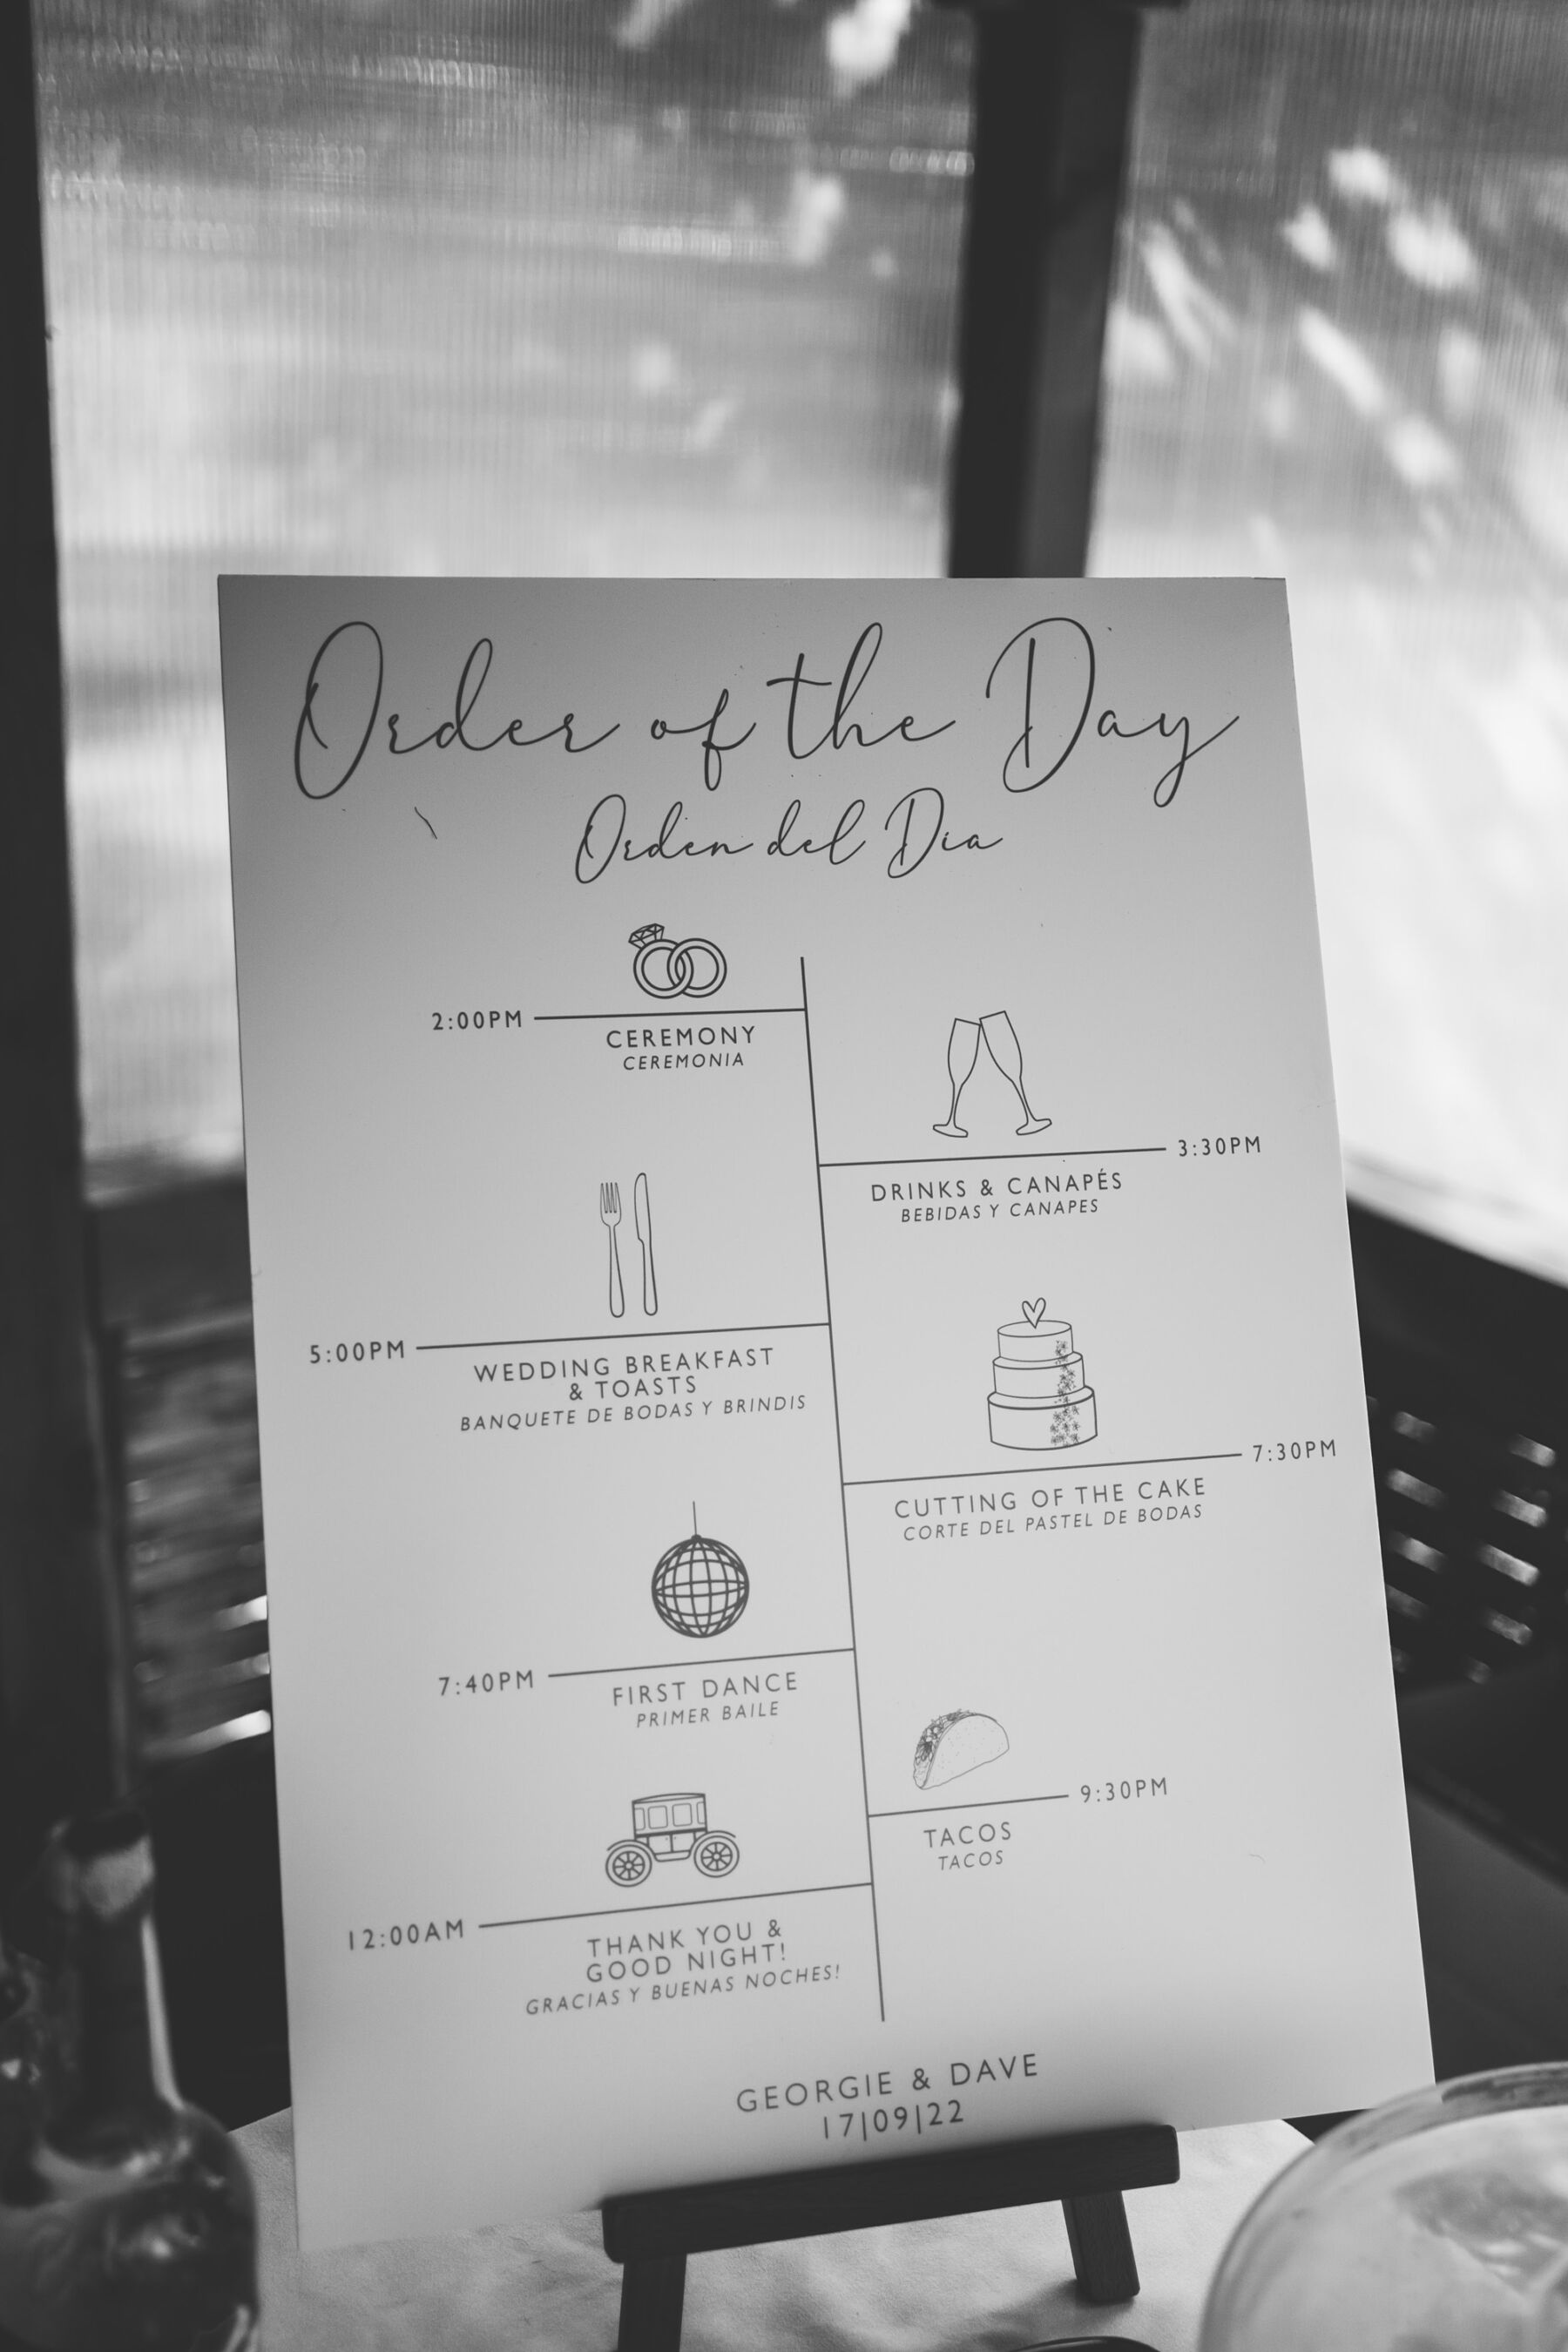 Order of the Day
Orden del Dia
2:00PM
CEREMONY
CEREMONIA
3:30PM
DRINKS & CANAPÉS
BEBIDAS Y CANAPES
5:00PM
WEDDING BREAKFAST
& TOASTS
BANQUETE DE BODAS Y BRINDIS
7:30PM
CUTTING OF THE CAKE
CORTE DEL PASTEL DE BODAS
7:40PM
FIRST DANCE
PRIMER BAILE
9:30PM
TACOS
TACOS
12:00AM
THANK YOU &
GOOD NIGHT!
GRACIAS Y BUENAS NOCHES!
GEORGIE & DAVE
17|09|22